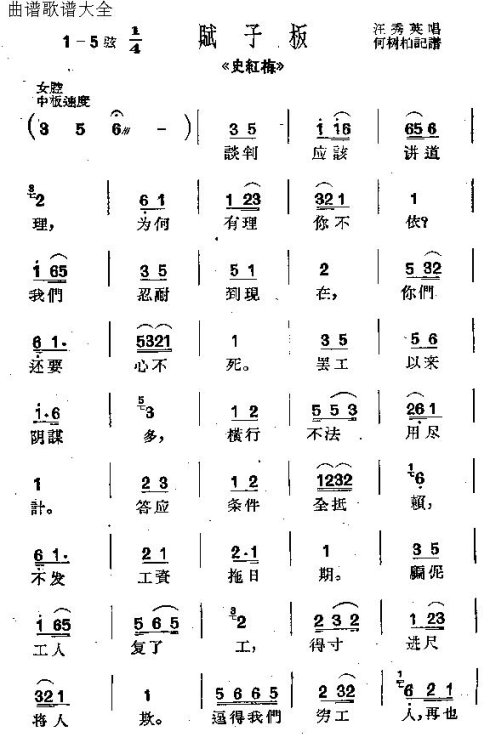 曲谱歌谱大全
1-5弦 1/4 賦子板 汪秀英唱
《史紅梅》 何树柏記譜
女腔
中板速度
(3 5 6 -) | 3 5 | 1 16 | 65 6
談判 应該 讲道
3 2 | 6 1 | 1 23 | 32 1 | 1
理， 为何 有理 你不 依？
1 65 | 3 5 | 5 1 | 2 | 5 32
我們 忍耐 到現 在， 你們
6 1. | 5321 | 1 | 3 5 | 5 6
还要 心不 死。 罢工 以来
1.6 | 5 3 | 1 2 | 5 5 3 | 26 1
阴謀 多， 橫行 不法 用尽
1 | 2 3 | 1 2 | 1232 | 1 6
計。 答应 条件 全抵 賴，
6 1. | 2 1 | 2.1 | 1 | 3 5
不发 工資 拖日 期。 騙伲
1 65 | 5 6 5 | 3 2 | 2 3 2 | 1 23
工人 复了 工， 得寸 进尺
32 1 | 1 | 5 6 6 5 | 2 32 | 1 6 2 1
将人 欺。 逼得我們 穷工 人，再也